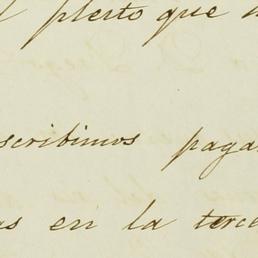 l plerto que
scribimos paga
as en la terce